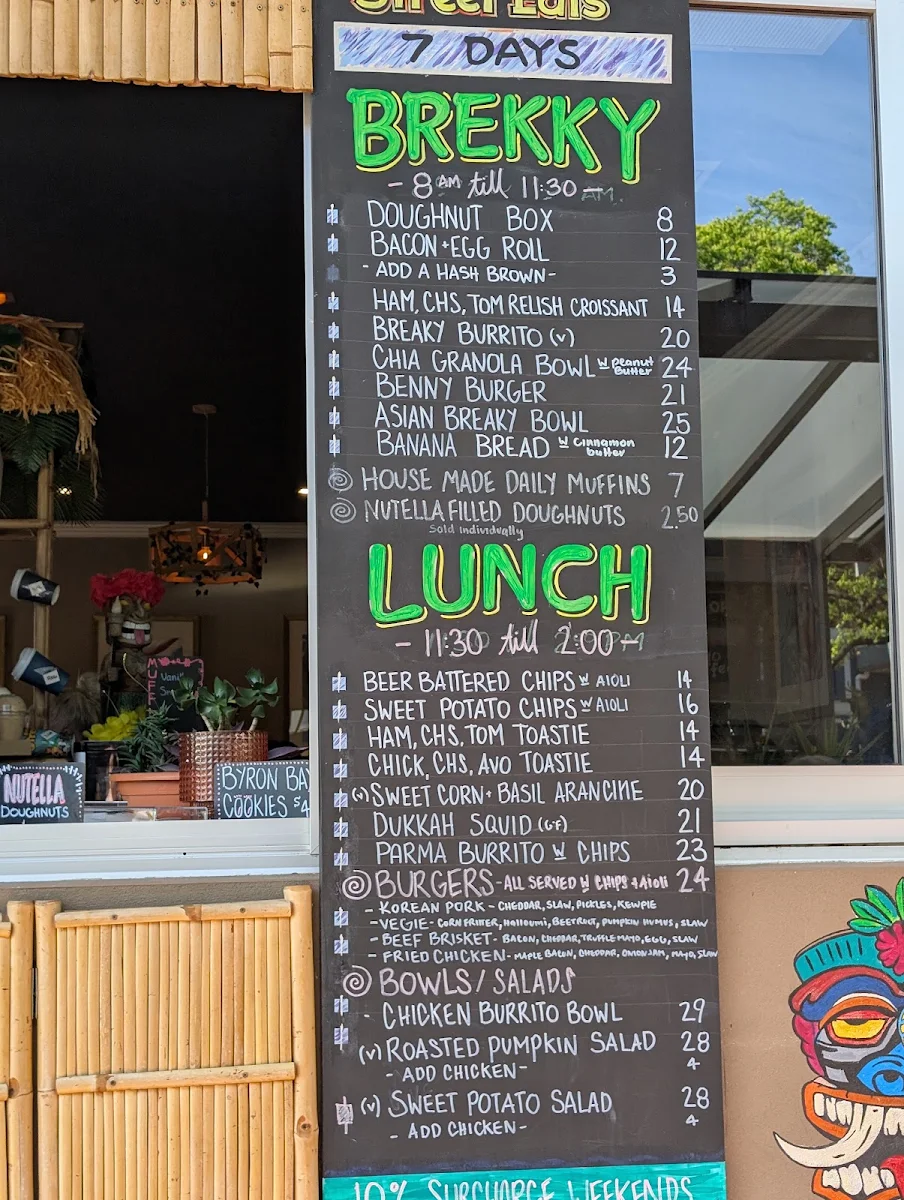 Street Eats
7 DAYS
BREKKY
- 8 AM till 11:30 AM -
DOUGHNUT BOX 8
BACON + EGG ROLL 12
- ADD A HASH BROWN - 3
HAM, CHS, TOM RELISH CROISSANT 14
BREAKY BURRITO (V) 20
CHIA GRANOLA BOWL W Peanut Butter 24
BENNY BURGER 21
ASIAN BREAKY BOWL 25
BANANA BREAD W Cinnamon butter 12
HOUSE MADE DAILY MUFFINS 7
NUTELLA FILLED DOUGHNUTS 2.50
Sold Individually
LUNCH
- 11:30 till 2:00 PM -
BEER BATTERED CHIPS W AIOLI 14
SWEET POTATO CHIPS W AIOLI 16
HAM, CHS, TOM TOASTIE 14
CHICK, CHS, AVO TOASTIE 14
(V) SWEET CORN + BASIL ARANCINE 20
DUKKAH SQUID (GF) 21
PARMA BURRITO W CHIPS 23
BURGERS - ALL SERVED W CHIPS + Aioli 24
- KOREAN PORK - CHEDDAR, SLAW, PICKLES, KEWPIE
- VEGIE - CORN FRITTER, Halloumi, BEETROOT, PUMPKIN HUMUS, SLAW
- BEEF BRISKET - BACON, CHEDDAR, TRUFFLE MAYO, EGG, SLAW
- FRIED CHICKEN - MAPLE BACON, CHEDDAR, ONION JAM, MAYO, SLAW
BOWLS / SALADS
- CHICKEN BURRITO BOWL 29
(V) ROASTED PUMPKIN SALAD 28
- ADD CHICKEN - 4
(V) SWEET POTATO SALAD 28
- ADD CHICKEN - 4
10% SURCHARGE WEEKENDS
MUFF
Vanil
NUTELLA
DOUGHNUTS
BYRON BAY
COOKIES $4